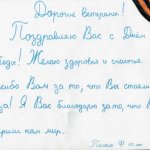 Дорогие ветераны!
Поздравляю Вас с Днём
беды! Желаю здоровья и счастья.
сибо Вам за то, что Вы стояли
да! Я Вас благодарю за то, что В
нам мир.